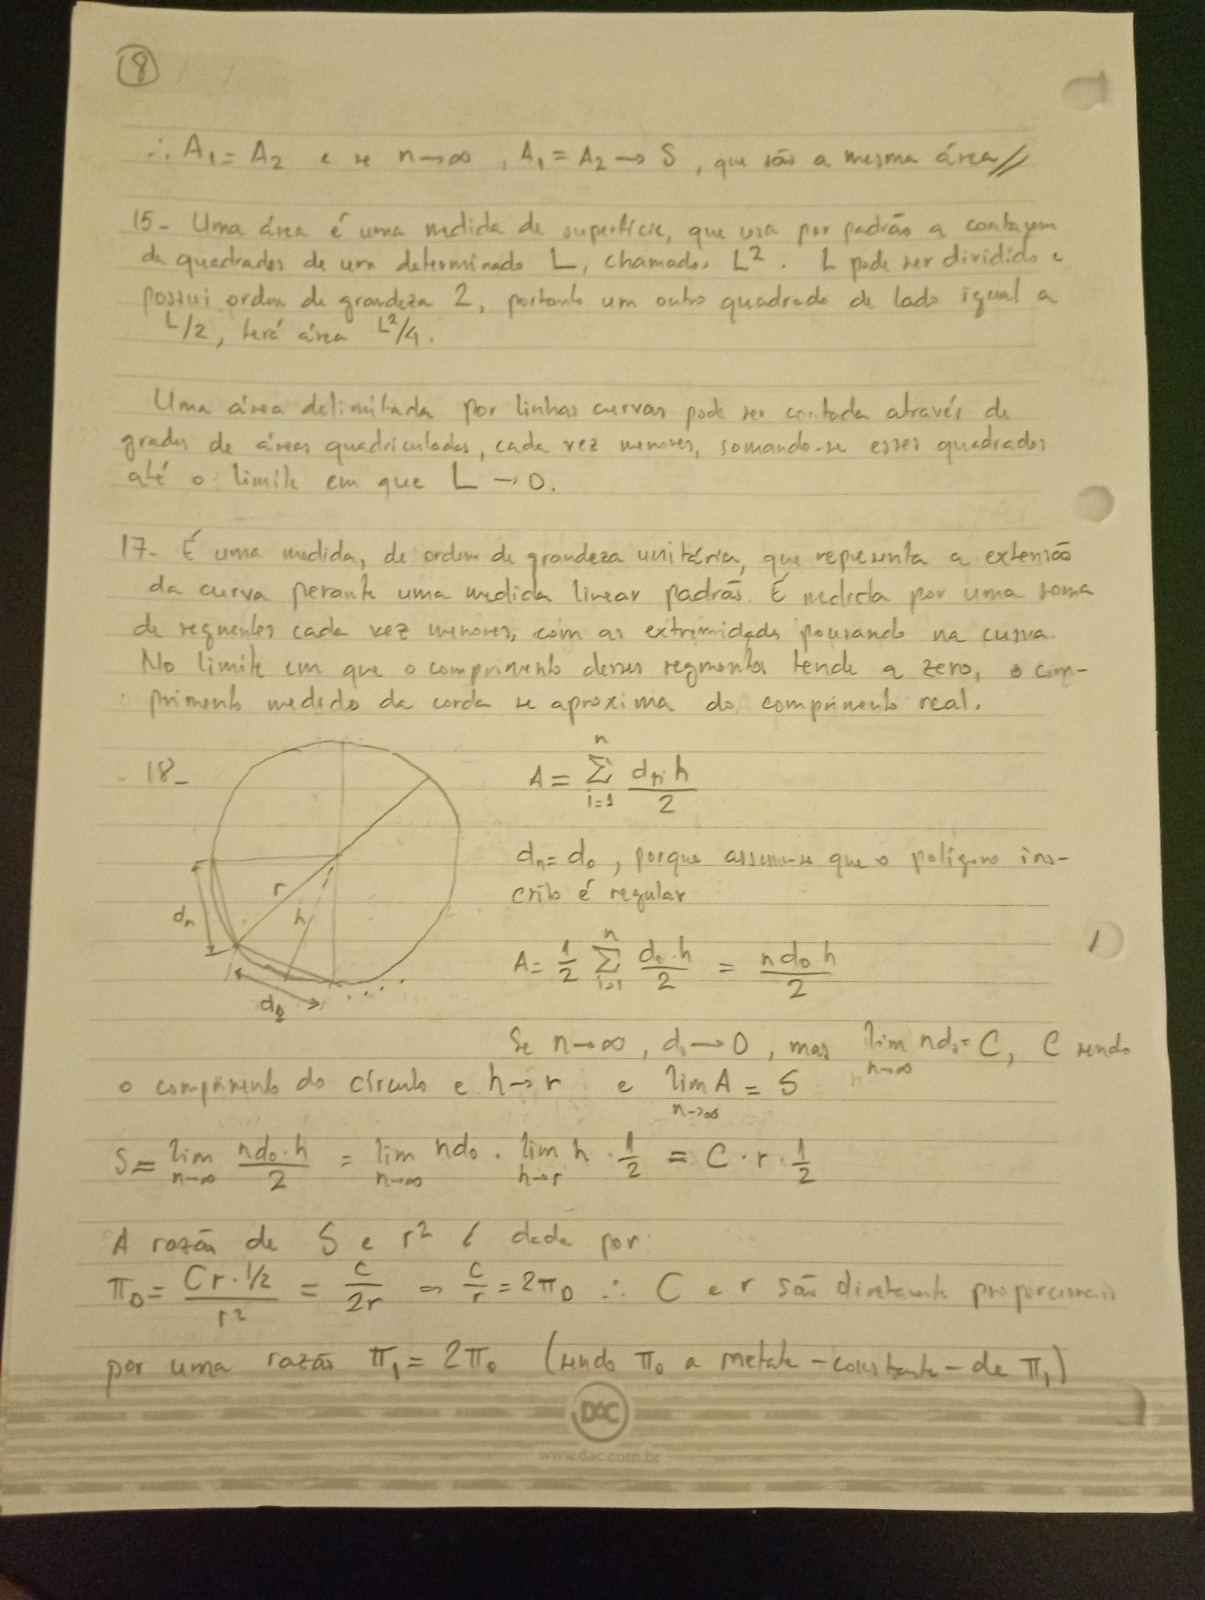 8
∴ A₁ = A₂ e se n→∞, A₁ = A₂ → S, que são a mesma área//
15- Uma área é uma medida de superfície, que usa por padrão a contagem
de quadrados de um determinado L, chamados L². L pode ser dividido e
possui ordem de grandeza 2, portanto um outro quadrado de lado igual a
L/2, terá área L²/4.
Uma área delimitada por linhas curvas pode ser contada através de
grades de áreas quadriculadas, cada vez menores, somando-se esses quadrados
até o limite em que L → 0.
17- É uma medida, de ordem de grandeza unitária, que representa a extensão
da curva perante uma medida linear padrão. É medida por uma soma
de segmentos cada vez menores, com as extremidades pousando na curva.
No limite em que o comprimento desses segmentos tende a zero, o com-
primento medido da corda se aproxima do comprimento real.
18-
A = Σ_{i=1}^{n} dₙ·h/2
dₙ = d₀, porque assume-se que o polígono ins-
crito é regular
r
h
dₙ
A = 1/2 Σ_{i=1}^{n} d₀·h/2 = nd₀h/2
Se n→∞, d₀→0, mas lim_{n→∞} nd₀ = C, C sendo
o comprimento do círculo e h→r e lim_{n→∞} A = S
S = lim_{n→∞} nd₀·h/2 = lim_{n→∞} nd₀ · lim_{h→r} h · 1/2 = C · r · 1/2
A razão de S e r² é dada por:
π₀ = Cr·1/2 / r² = C/2r → C/r = 2π₀ ∴ C e r são diretamente proporcionais
por uma razão π₁ = 2π₀ (sendo π₀ a metade -constante- de π₁)
DAC
www.dac.com.br